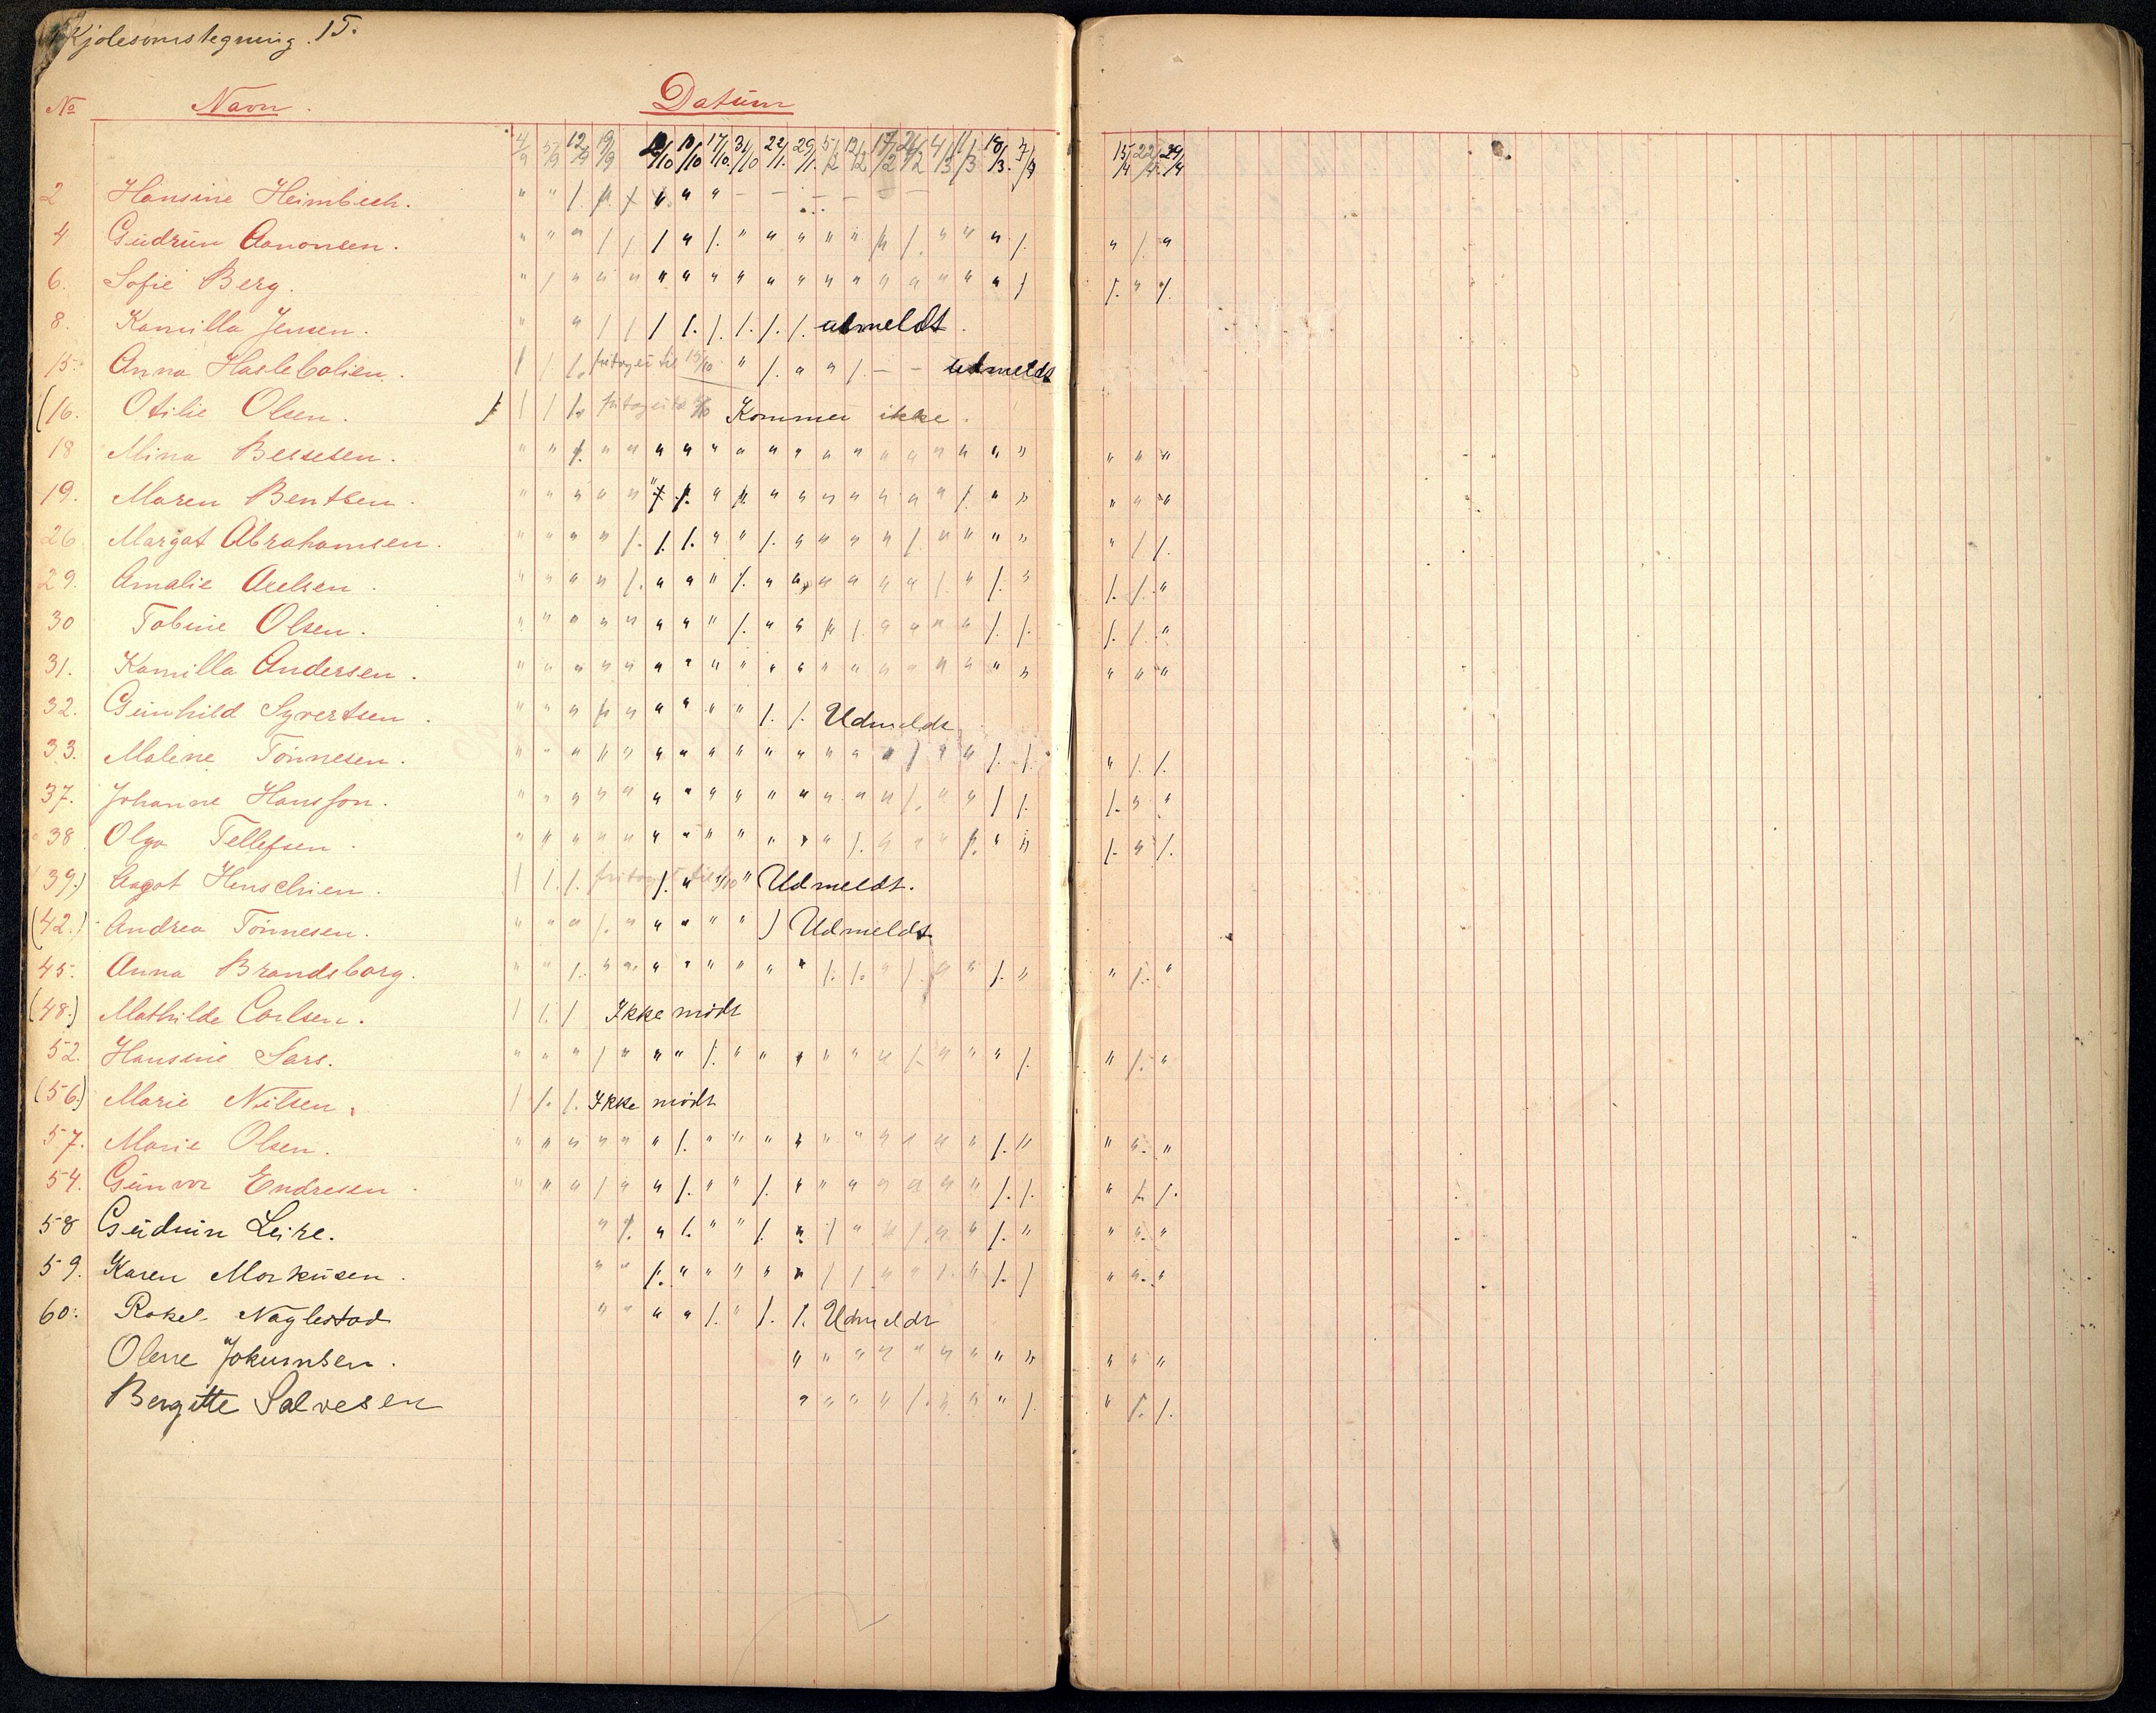 Kjolesömstegning. 15.
No Navn. Datum
4/9 5/9 12/9 19/9 10/10 17/10 31/10 22/1. 29/1. 5/2 12/2 17/2 26/2 4/3 11/3 18/3. 7/4 15/4 22/4 29/4
2 Hansine Heimbeck.
4 Gudrun Aanonsen.
6. Sofie Berg.
8. Kamilla Jensen. utmeldt.
15. Anna Haslebalien. fritagen til 15/10 utmeldt
(16. Otilie Olsen. Kommer ikke.
18 Mina Bessesen.
19. Maren Bentsen.
26 Margot Abrahamsen.
29. Amalie Axelsen.
30 Tobine Olsen.
31. Kamilla Andersen.
32. Gunhild Syvertsen. Udmeldt
33. Malene Tönnesen.
37. Johanne Hansson.
38 Olga Tellefsen.
39.) Aagot Henschien. Udmeldt.
(42.) Andrea Tönnesen. Udmeldt.
45. Anna Brandsborg.
(48.) Mathilde Carlsen. Ikke mödt
52. Hansine Sars.
(56.) Marie Nilsen. Ikke mödt
57. Marie Olsen.
54. Gunvor Endresen.
58 Gudrun Leire.
59. Karen Markusen.
60. Rakel Naglestad Udmeldt
Olene Jokumsen.
Bergitte Salvesen